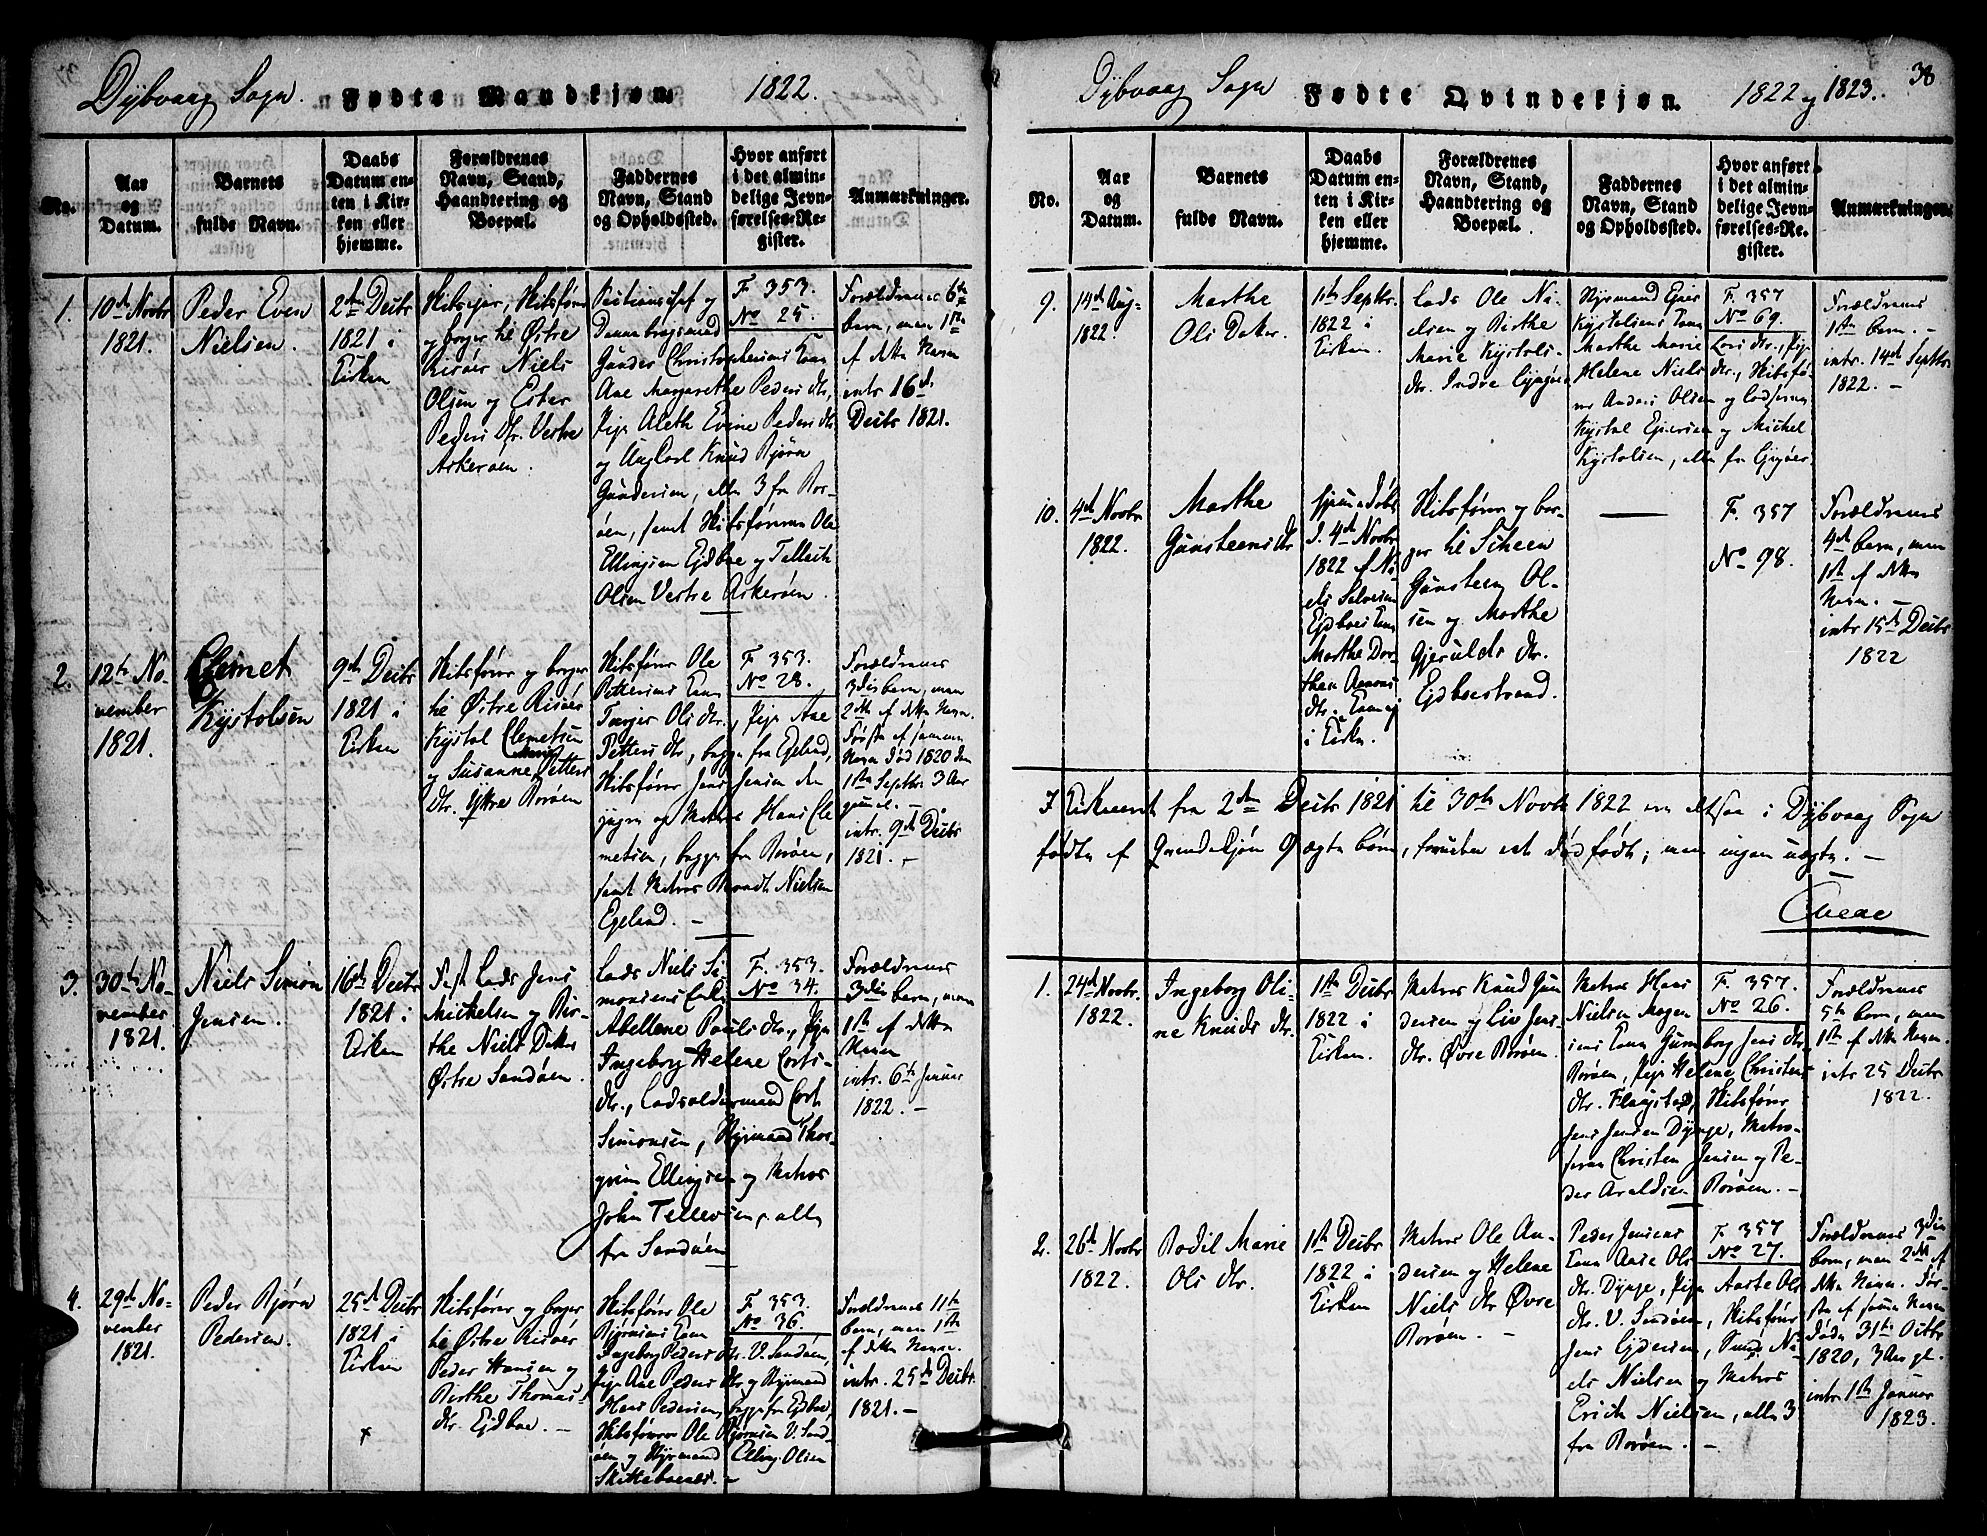 Dybvaag Sogn. Fødte Mandkjøn. 1822.
No.
Aar
og
Datum.
Barnets
fulde Navn.
Daabs
Datum en-
ten i Kir-
ken eller
hjemme.
Forældrenes
Navn, Stand,
Haandtering og
Boepæl.
Faddernes
Navn, Stand
og Opholdssted.
Hvor anført
i det almin-
delige Jevn-
førelses-Re-
gister.
Anmærkninger.
1.
10de Novbr
1821.
Peder Even
Nielsen.
2den Decbr
1821 i
Kirken
og borger til Østre
Risøer Niels
Olsen og Ester
Peders Dtr. Vestre
Askerøen.
Gunder Christophersens Kone
Ane Margarethe Peders dtr,
Pige Aleth Evine Peders dtr
og Ungkarl Knud Bjørn
Gundersen, alle 3 fra Bor-
øen, samt Skibsfører Ole
Ellingsen Ejdboe og Tellech
Olsen Vestre Askerøen.
F. 353.
No 25.
Forældrenes 6te
barn, men 1ste
af dette Navn
intr. 16de
Decbr 1821.
2.
12te No-
vember
1821.
Clemet
Kystolsen
9de Decbr
1821 i
Kirken
Skibsfører og borger
til Østre Risøer
Kystol Clemetsen
og Susanne Petters
Dtr. Ytre Borøen
Skibsfører Ole
Pettersens Kone
Torger Ols dtr., Pige Ane
Petters dtr, begge fra Egeland,
Skibsfører Jens Jensen den
yngre og Matros Hans Cle-
metsen, begge fra Borøen,
samt Matros Brandt Nielsen
Egeland. -
F. 353.
No 28.
Forældrenes
3die barn, men
2det af dette Navn.
Første af samme
Navn død 1820 den
1ste Septbr 3 Aar
gammel. -
intr. 9de Decbr
1821. -
3.
30te No-
vember
1821.
Niels Simon
Jensen.
16de Decbr
1821 i
Kirken
Fast Lods Jens
Michelsen og Bir-
the Niels Datter
Østre Sandøen.
Lods Niels Si-
monsens Enke
Abellene Pouls dtr., Pige
Ingeborg Helene Corts
dtr., Lodsoldermand Cort
Simonsen, Styrmand Thor-
grim Ellingsen og Matros
John Tellevsen, alle
fra Sandøen
F. 353.
No 34.
Forældrenes
3die barn, men
1ste af dette
Navn
intr. 6te Januar
1822. -
4.
29de No-
vember
1821.
Peder Bjørn
Pedersen.
25de Decbr
1821 i
Kirken
Skibsfører og borger
til Østre Risøer
Peder Hansen og
Birthe Thomas
dtr. Ejdboe. -
Skibsfører Ole
Bjørnsens Kone
Ingeborg Peders dtr. V. Sandøen,
Pige Ane Peders dtr og Styrmand
Hans Pedersen, begge fra Ejdboe,
Skibsfører Ole Bjørnsen V. Sand-
øen og Styrmand Elling Olsen
F. 353.
No 36.
Forældrenes 11te
barn, men 1ste
af dette Navn.
intr. 25de Decbr
1821. -
Dybvaag Sogn Fødte Qvindekjøn. 1822 og 1823. 38
No.
Aar
og
Datum.
Barnets
fulde Navn.
Daabs
Datum en-
ten i Kir-
ken eller
hjemme.
Forældrenes
Navn, Stand,
Haandtering og
Boepæl.
Faddernes
Navn, Stand
og Opholdssted.
Hvor anført
i det almin-
delige Jevn-
førelses-Re-
gister.
Anmærkninger.
9.
14de Aug.
1822.
Marthe
Ols Datter.
1ste Septbr.
1822 i
Kirken.
Lods Ole Ni-
elsen og Birthe
Marie Kystols
dtr. Indre
Marthe Marie
Helene Niels dtr., Skibsfø-
rer Anders Olsen og Lodserne
Kystol Ejersen og Michel
Kystolsen, alle fra
F. 357
No 69.
Forældrenes
1ste barn. -
intr. 14de Septbr.
1822. -
10.
4de Novbr
1822.
Marthe
Gunsteens dtr
hjemmedøbt
d. 4de Novbr
1822 af Ni-
els
Marthe Dor-
thea Aanons
dtr.
i Kirken.
Skibsfører og bor-
ger til Scheen
Gunsteen Ol-
sen og Marthe
Gjerulds dtr.
Ejdboestrand.
F. 357
No 98.
Forældrenes
4de barn, men
1ste af dette
Navn. -
intr 15de Decbr
1822
I Kirkeaaret fra 2den Decbr 1821 til 30te Novbr 1822 ere altsaa i Dybvaag Sogn
fødte af Qvindekjøn 9 ægte børn, foruden eet dødfødt; men ingen uægte. -
1.
24de Novbr.
1822.
Ingeborg Oli-
ne Knuds dtr.
1ste Decbr
1822 i
Kirken.
Matros Knud Gun-
dersen og Liv Jens
dtr. Øvre Borøen.
Matros Hans
Nielsen Mogen
sens Kone Gunborg Jens dtr
Borøen, Pige Helene Christens
dtr. Flagstad, Skibsfører
Jens Jensen Dynge, Matro-
serne Christen Jensen og Pe-
der Aroldsen Borøen. -
F. 357.
No 26.
Forældrenes
5te barn, men
1ste af dette Navn.
intr 25 Decbr
1822.
2.
26de Novbr
1822.
Bodil Marie
Ols dtr.
1ste Decbr
1822 i
Kirken
Matros Ole An-
dersen og Helene
Niels dtr Øvre
Borøen. -
Peder Jensens
Kone Aase Ols
dtr. Dynge, Pige Aaste Ols
dtr. V. Sandøen, Skibsfører
Jens Ejdersen, Ni-
els Nielsen og Matros
Erich Nielsen, alle 3
fra Borøen. -
F. 357
No 27.
Forældrenes 3die
barn, men 2det af
dette Navn. Før-
ste af samme Navn
døde 31te Octbr
1820, 3 Aar gl.
intr 1ste Januar
1823.